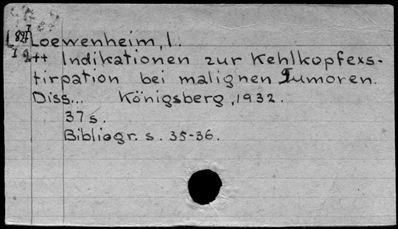 Loewenheim, I.
Indikationen zur Kehlkopfexs-
tirpation bei malignen Tumoren.
Diss... Königsberg, 1932.
37 s.
Bibliogr. s. 35-36.